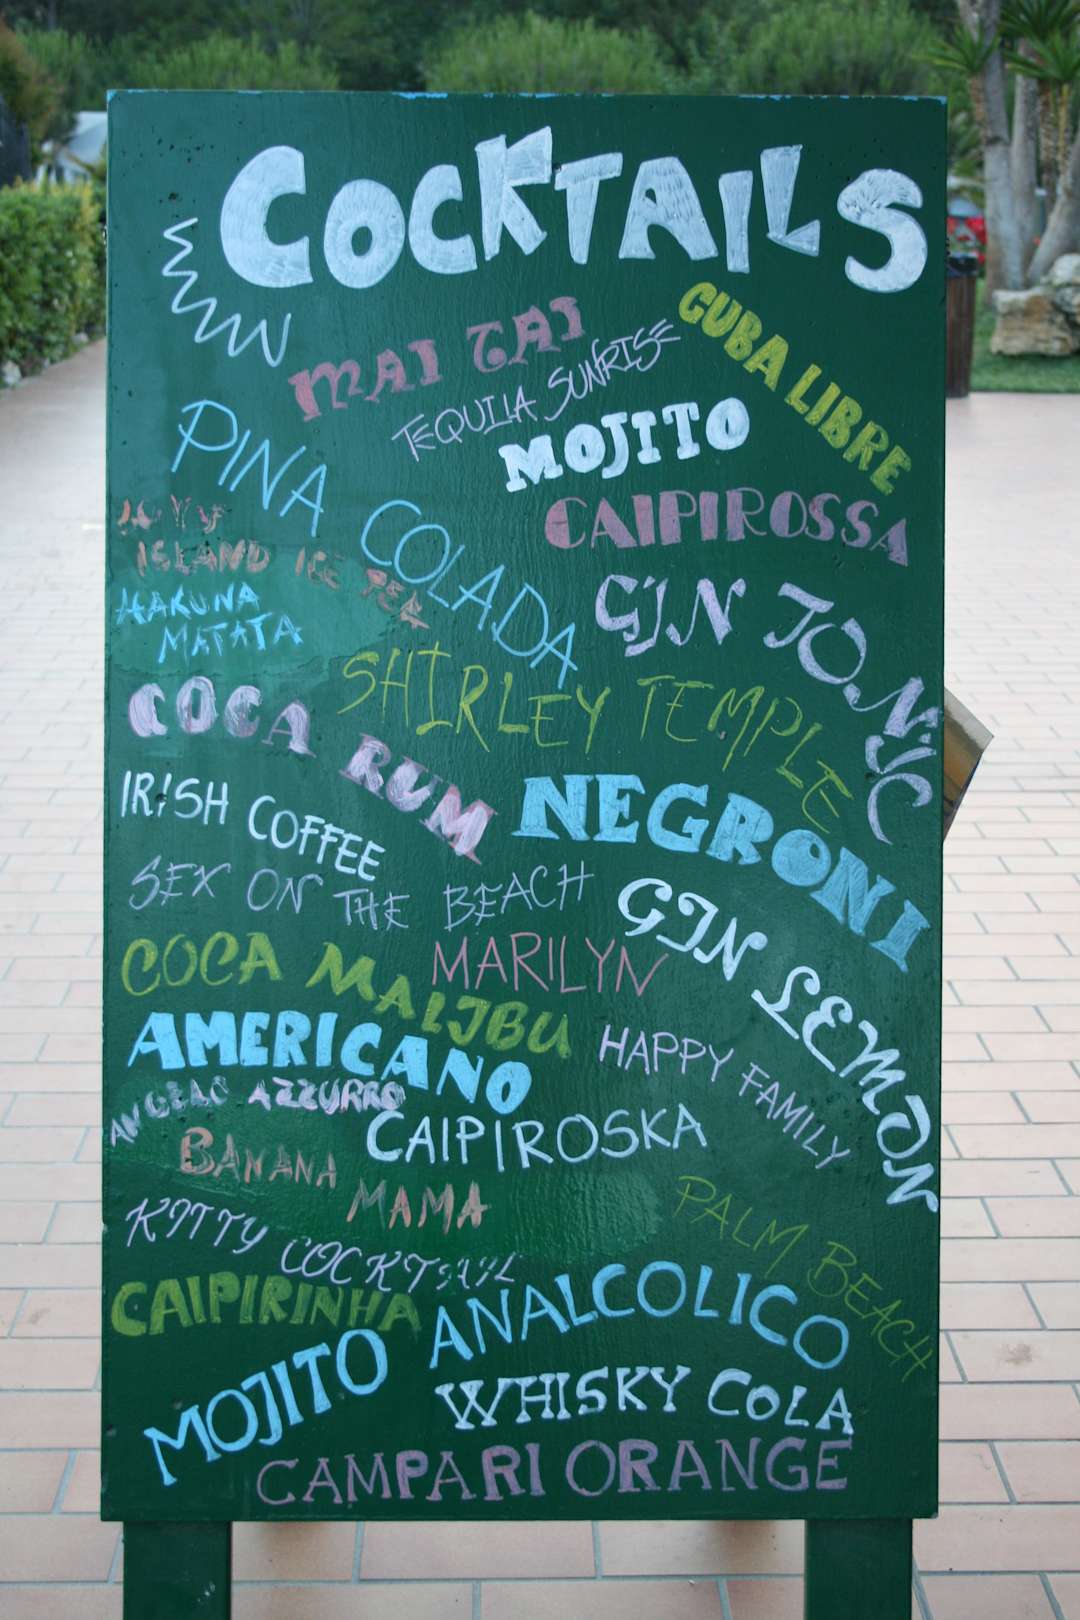 COCKTAILS
MAI TAI
CUBA LIBRE
TEQUILA SUNRISE
MOJITO
PINA COLADA
CAIPIROSSA
ISLAND ICE TEA
HAKUNA
MATATA
GIN TONIC
SHIRLEY TEMPLE
COCA RUM
IRISH COFFEE
NEGRONI
SEX ON THE BEACH
GIN LEMON
COCA MALIBU
MARILYN
AMERICANO
HAPPY FAMILY
ANGELO AZZURRO
CAIPIROSKA
BANANA MAMA
KITTY COCKTAIL
PALM BEACH
CAIPIRINHA
MOJITO ANALCOLICO
WHISKY COLA
CAMPARI ORANGE